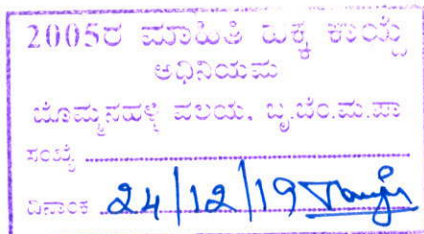 2005ರ ಮಾಹಿತಿ ಹಕ್ಕು ಕಾಯ್ದೆ
ಅಧಿನಿಯಮ
ಬೊಮ್ಮನಹಳ್ಳಿ ವಲಯ, ಬೃ.ಬೆಂ.ಮ.ಪಾ
ಸಂಖ್ಯೆ
ದಿನಾಂಕ 24/12/19